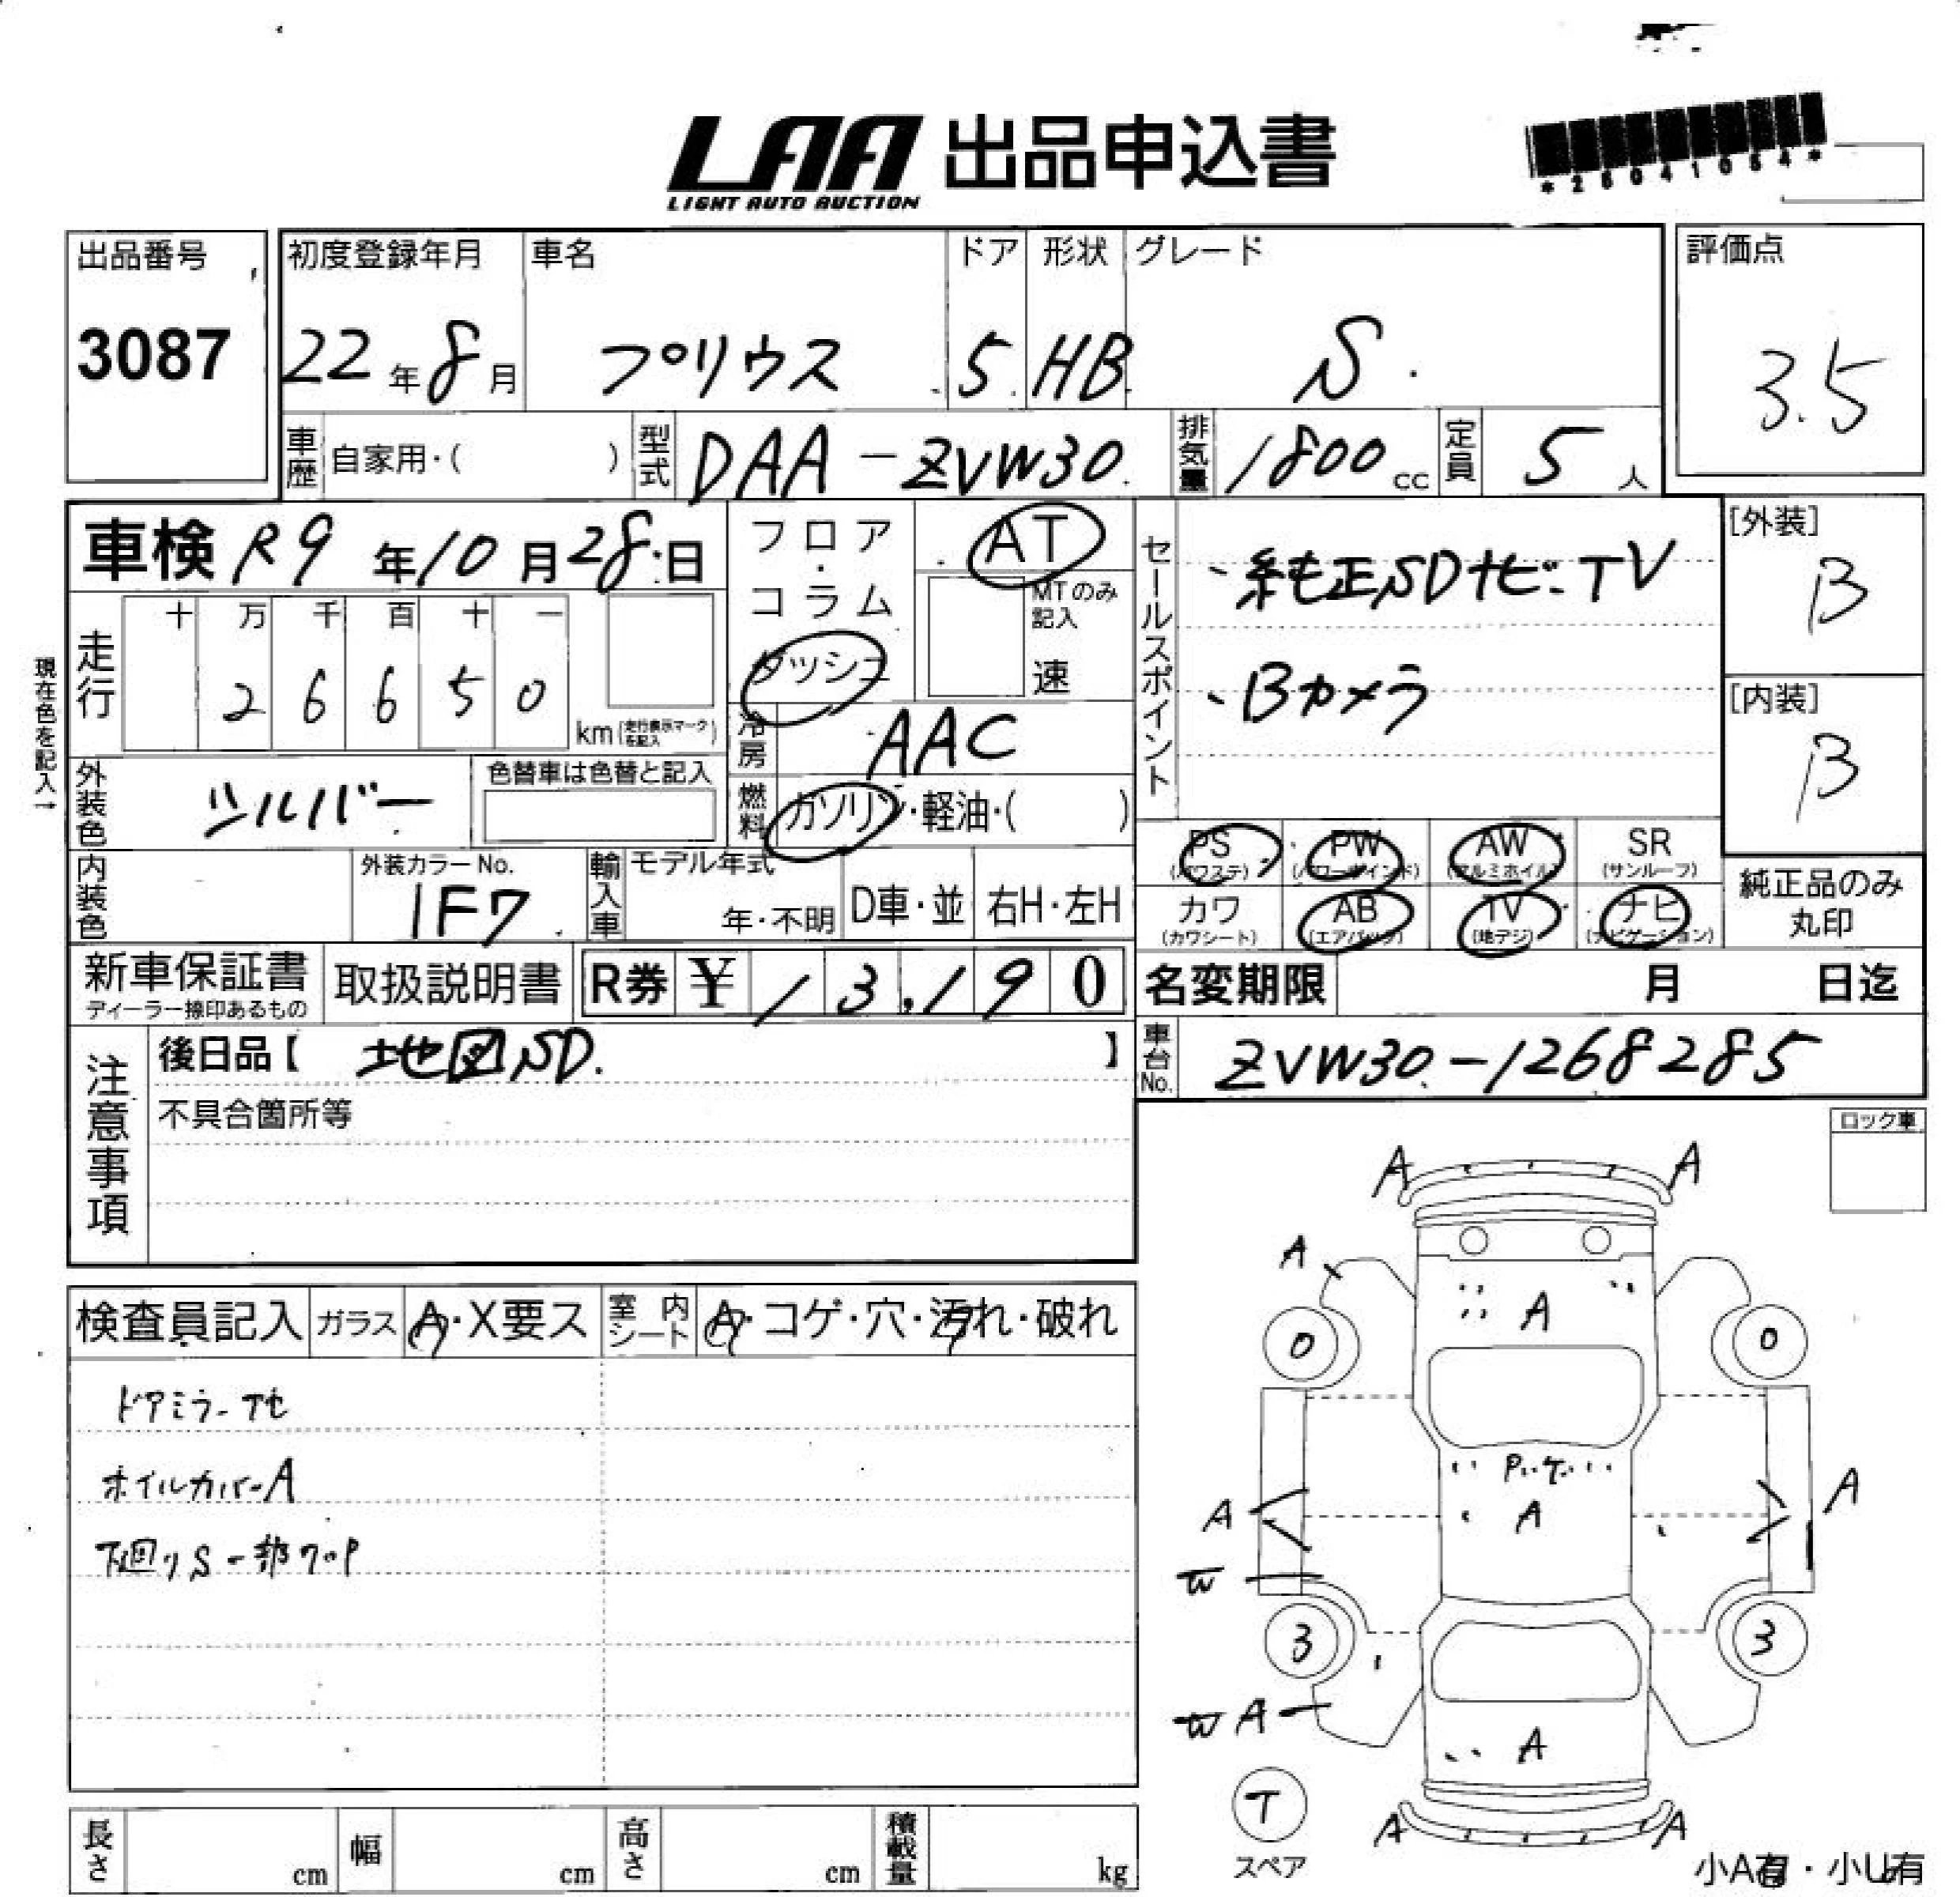 LAA 出品申込書
LIGHT AUTO AUCTION
*26041054*
出品番号
3087
初度登録年月
22年8月
車名
プリウス
ドア
5
形状
HB
グレード
S
評価点
3.5
車歴 自家用・( )
型式 DAA-ZVW30
排気量 1800cc
定員 5人
車検 R9年10月28日
フロア・コラム
ダッシュ
AT
MTのみ記入
速
セールスポイント
・純正SDナビ-TV
・Bカメラ
[外装]
B
[内装]
B
現在色を記入→
走行
十 万 千 百 十 一
2 6 6 5 0
km(走行表示マークを記入)
冷房 AAC
外装色 シルバー
色替車は色替と記入
燃料 ガソリン・軽油・( )
PS (パワステ)
PW (パワーウインド)
AW (アルミホイル)
SR (サンルーフ)
カワ (カワシート)
AB (エアバック)
TV (地デジ)
ナビ (ナビゲーション)
純正品のみ丸印
内装色
外装カラーNo.
1F7
輸入車
モデル年式
年・不明
D車・並
右H・左H
新車保証書
ディーラー捺印あるもの
取扱説明書
R券 ¥ 13,190
名変期限 月 日迄
注意事項
後日品【 地図SD. 】
車台No. ZVW30-1268285
不具合箇所等
ロック車
検査員記入
ガラス A・X要ス
室内シート A・コゲ・穴・汚れ・破れ
ドアミラーナセ
ホイルカバーA
下廻りS
A A
A
A
0 0
A
A A
A
W
3 3
W A
A
T
スペア
A A
小A有・小U有
長さ cm
幅 cm
高さ cm
積載量 kg